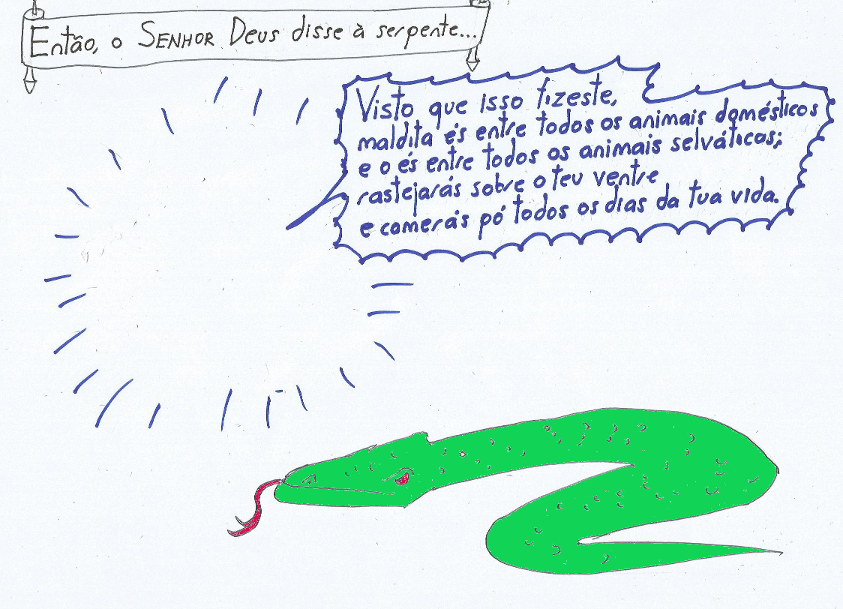 Então, o SENHOR Deus disse à serpente...
Visto que isso fizeste,
maldita és entre todos os animais domésticos
e o és entre todos os animais selváticos;
rastejarás sobre o teu ventre
e comerás pó todos os dias da tua vida.